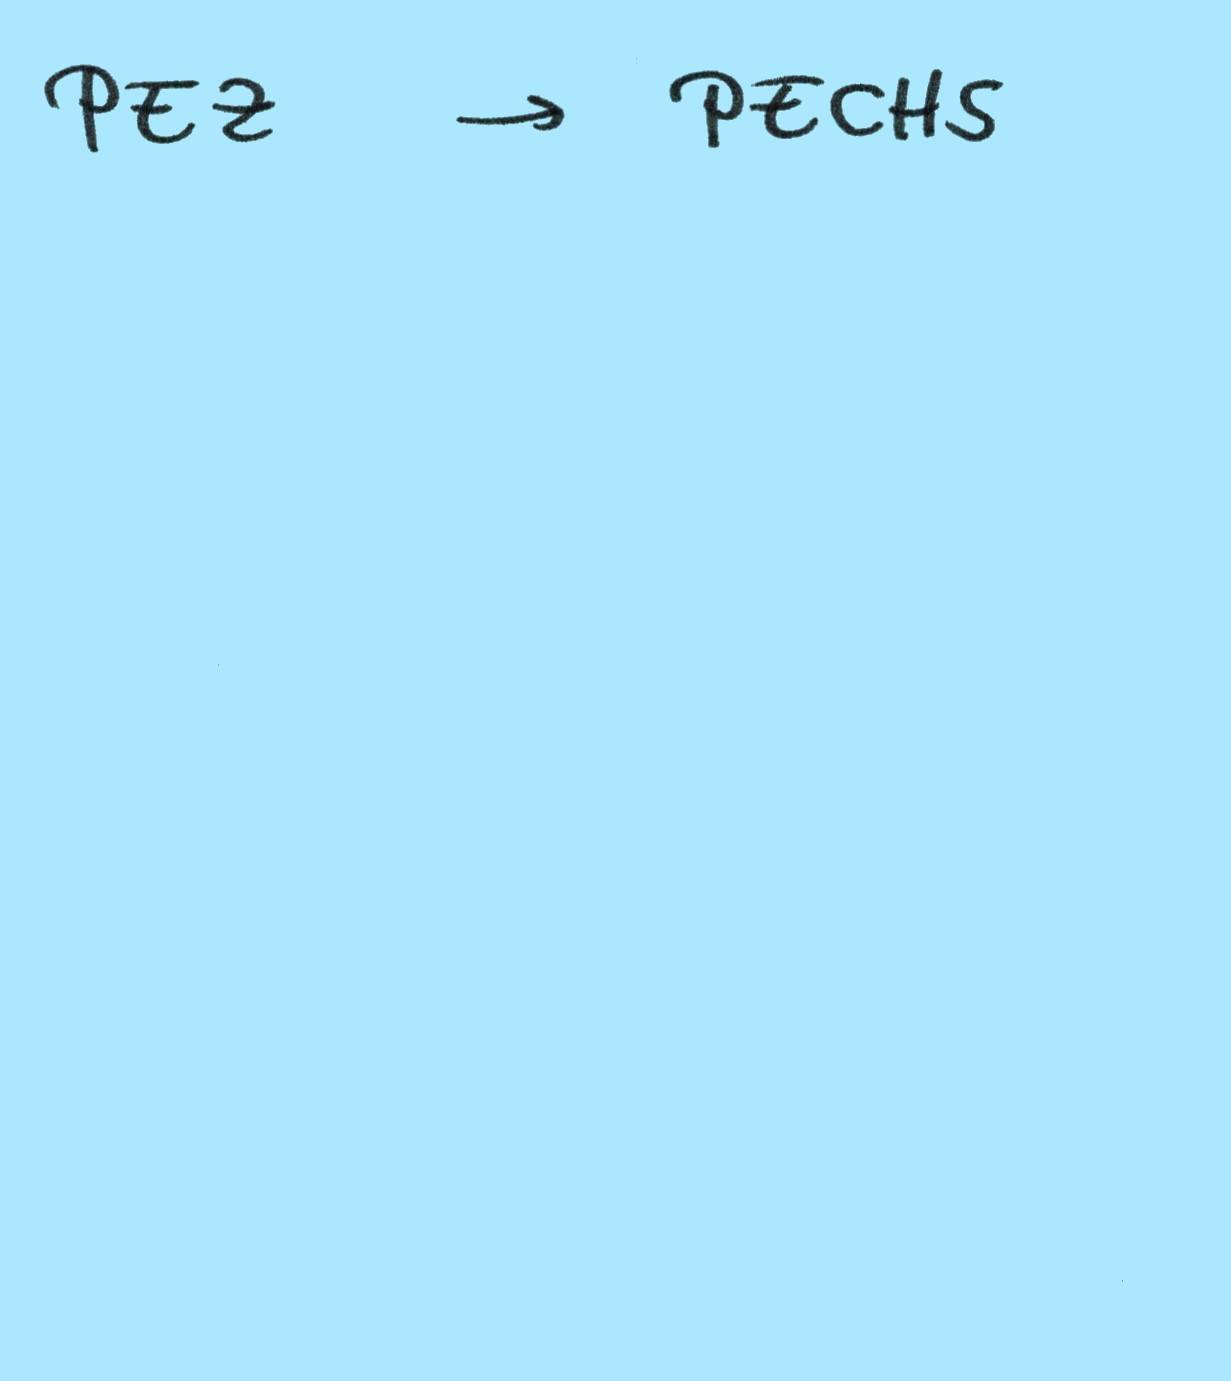 PEZ → PECHS